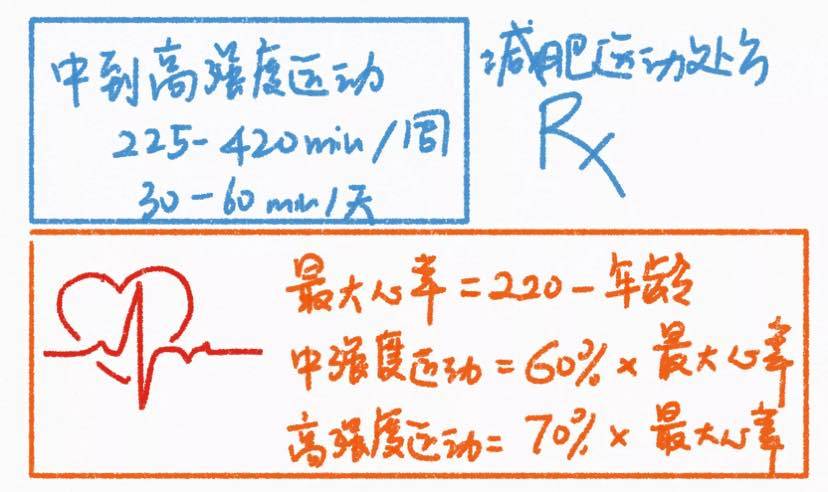 中到高强度运动
225-420min/周
30-60min/天
减肥运动处方
Rx
最大心率=220-年龄
中强度运动=60%×最大心率
高强度运动=70%×最大心率